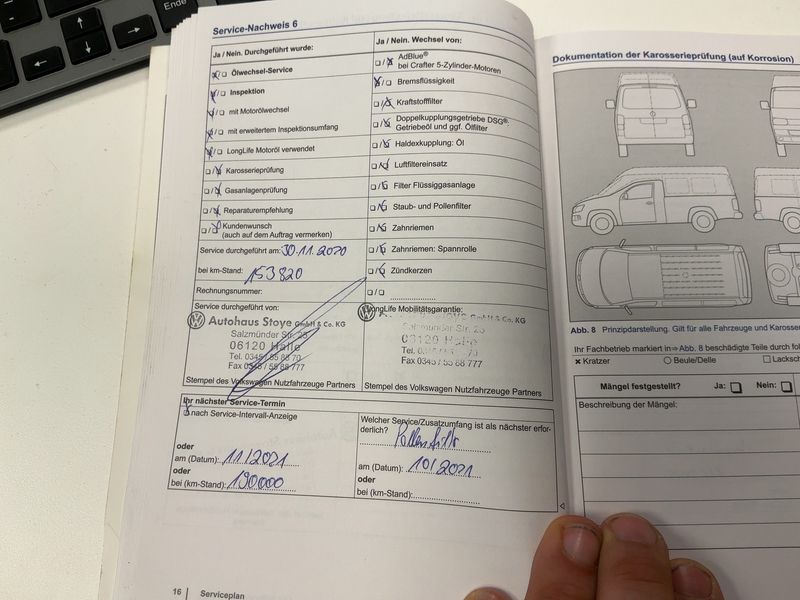 Ende
Service-Nachweis 6
Ja / Nein. Durchgeführt wurde:
Ölwechsel-Service
Inspektion
mit Motorölwechsel
mit erweitertem Inspektionsumfang
LongLife Motoröl verwendet
Karosserieprüfung
Gasanlagenprüfung
Reparaturempfehlung
Kundenwunsch
(auch auf dem Auftrag vermerken)
Service durchgeführt am: 30.11.2020
bei km-Stand: 153820
Rechnungsnummer:
Service durchgeführt von:
Autohaus Stoye GmbH & Co. KG
Salzmünder Str. 25
06120 Halle
Tel. 0345 / 55 88 70
Fax 0345 / 55 88 777
Stempel des Volkswagen Nutzfahrzeuge Partners
Ja / Nein. Wechsel von:
AdBlue®
bei Crafter 5-Zylinder-Motoren
Bremsflüssigkeit
Kraftstofffilter
Doppelkupplungsgetriebe DSG®:
Getriebeöl und ggf. Ölfilter
Haldexkupplung: Öl
Luftfiltereinsatz
Filter Flüssiggasanlage
Staub- und Pollenfilter
Zahnriemen
Zahnriemen: Spannrolle
Zündkerzen
LongLife Mobilitätsgarantie:
GmbH & Co. KG
Salzmünder Str. 25
06120 Halle
Tel. 0345 /
Fax 0345 / 55 88 777
Stempel des Volkswagen Nutzfahrzeuge Partners
Ihr nächster Service-Termin
nach Service-Intervall-Anzeige
oder
am (Datum): 11/2021
oder
bei (km-Stand): 190000
Welcher Service/Zusatzumfang ist als nächster erfor-
derlich? Pollenfilter
am (Datum): 10/2021
oder
bei (km-Stand):
16 Serviceplan
Dokumentation der Karosserieprüfung (auf Korrosion)
Abb. 8 Prinzipdarstellung. Gilt für alle Fahrzeuge und
Ihr Fachbetrieb markiert in ⇒ Abb. 8 beschädigte Teile durch
Kratzer
Beule/Delle
Mängel festgestellt?
Ja:
Nein:
Beschreibung der Mängel: